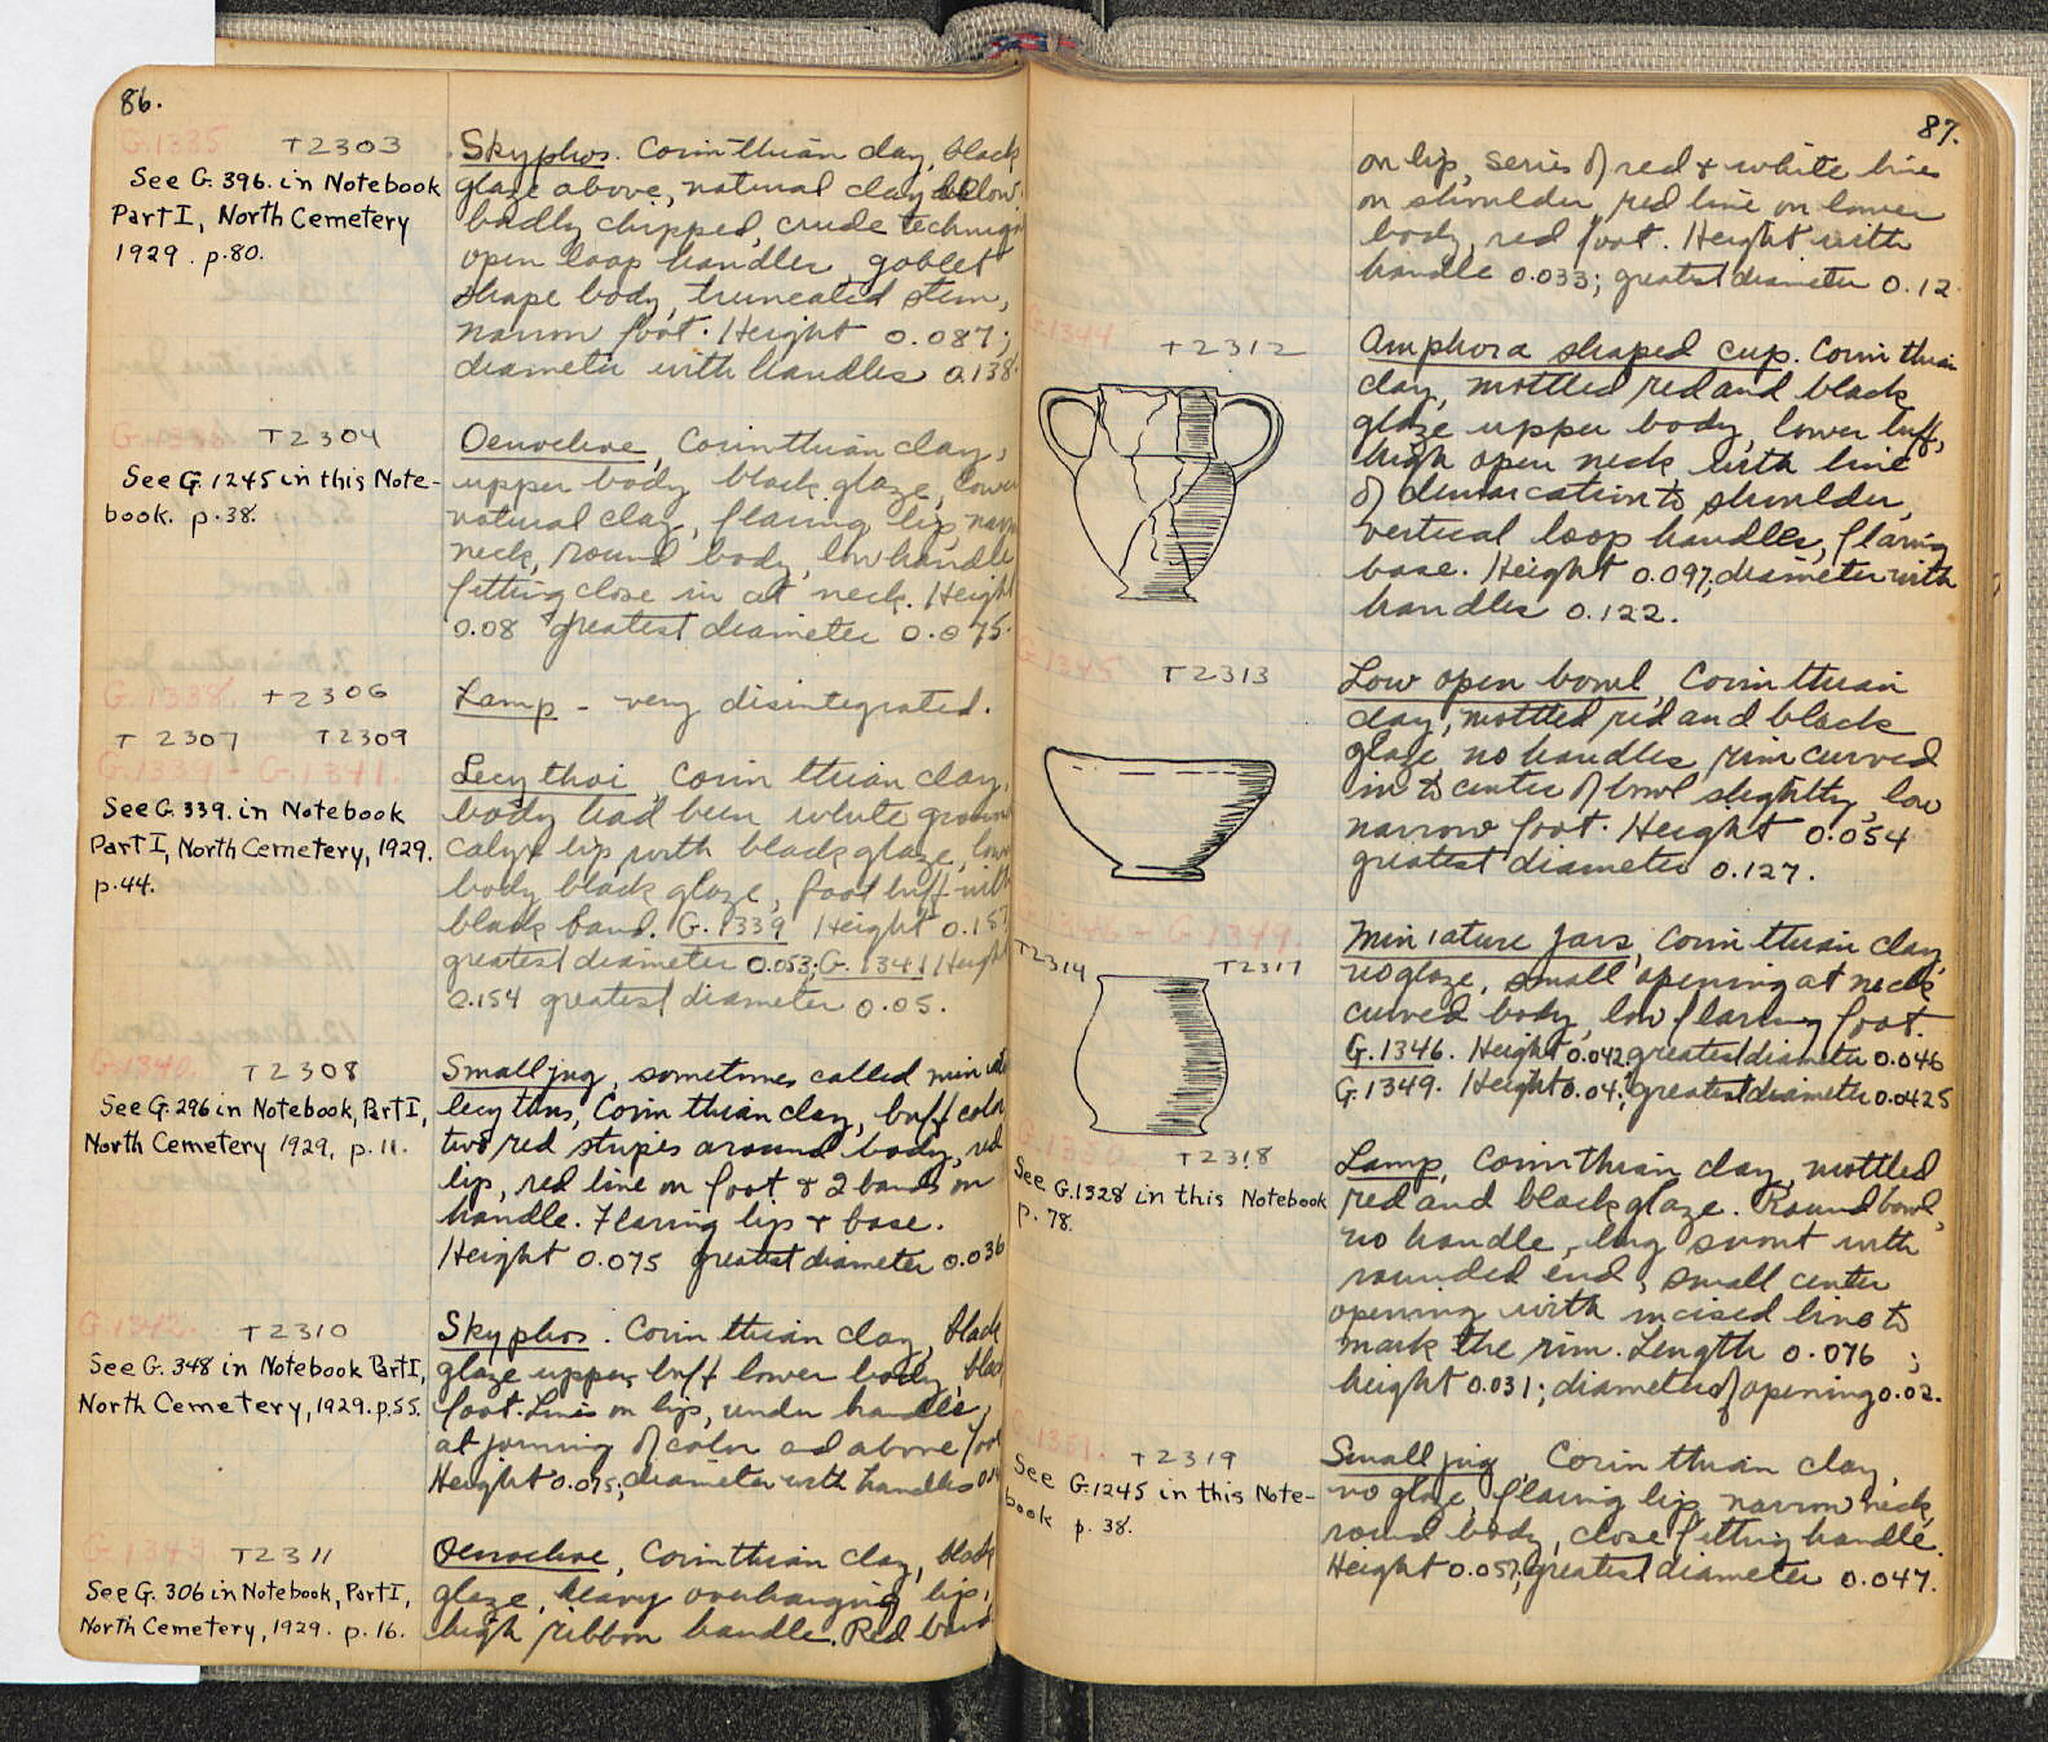 86.
G.1335 T2303
See G. 396. in Notebook
Part I, North Cemetery
1929. p.80.
Skyphos. Corinthian clay, black
glaze above, natural clay below.
badly chipped, crude
open loop handles, goblet
shape body, truncated stem,
narrow foot. Height 0.087;
diameter with handles 0.138.
T2304
See G. 1245 in this Note-
book. p.38.
Oenochoe, Corinthian clay,
upper body black glaze, lower
natural clay, flaring lip,
neck, round body, low handle
fitting close in at neck. Height
0.08 greatest diameter 0.075.
G. 1338. T2306
Lamp - very disintegrated.
T 2307 T2309
G.1339 - G.1341.
See G. 339. in Notebook
Part I, North Cemetery, 1929.
p.44.
Lecythoi, Corinthian clay,
body had been white ground
calyx lip with black glaze,
body black glaze, foot buff with
black band. G. 1339 Height
greatest diameter 0.053; G. 1341 Height
0.154 greatest diameter 0.05.
G.1340. T2308
See G. 296 in Notebook, Part I,
North Cemetery 1929, p.11.
Small jug, sometimes called
lecythus, Corinthian clay, buff color
two red stripes around body, red
lip, red line on foot & 2 bands on
handle. Flaring lip & base.
Height 0.075 greatest diameter 0.036
G.1342. T2310
See G. 348 in Notebook Part I,
North Cemetery, 1929. p.55.
Skyphos. Corinthian clay, black
glaze upper, buff lower body,
foot. Lines on lip, under handles,
at joining of color ad above foot
Height 0.075; diameter with handles
G.1343 T2311
See G. 306 in Notebook, Part I,
North Cemetery, 1929. p.16.
Oenochoe, Corinthian clay, black
glaze, heavy overhanging lip,
high ribbon handle. Red band
87.
on lip, series of red & white lines
on shoulder, red line on lower
body, red foot. Height with
handle 0.033; greatest diameter 0.12
G.1344 T2312
Amphora shaped cup. Corinthian
clay, mottled red and black
glaze upper body, lower buff,
high open neck with line
of demarcation to shoulder,
vertical loop handles, flaring
base. Height 0.097; diameter with
handles 0.122.
G.1345 T2313
Low open bowl, Corinthian
clay, mottled red and black
glaze no handles rim curved
in to center of bowl slightly, low
narrow foot. Height 0.054
greatest diameter 0.127.
G.1346 - G.1349.
T2314 T2317
Miniature Jars, Corinthian clay,
no glaze, small opening at neck
curved body, low flaring foot.
G.1346. Height 0.042 greatest diameter 0.046
G.1349. Height 0.04; greatest diameter 0.0425
T2318
See G.1328 in this Notebook
p. 78.
Lamp, Corinthian clay, mottled
red and black glaze. Round bowl,
no handle, long snout with
rounded end, small center
opening with incised line to
mark the rim. Length 0.076;
height 0.031; diameter of opening 0.02.
G.1351. T2319
See G.1245 in this Note-
book p. 38.
Small jug, Corinthian clay,
no glaze, flaring lip, narrow neck,
round body, close fitting handle.
Height 0.057; greatest diameter 0.047.